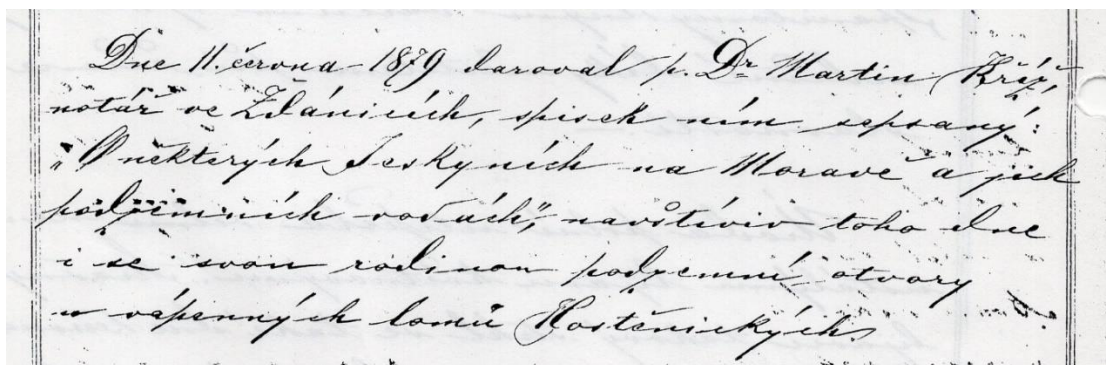 Dne 11. června 1879 daroval p. Dr Martin Kříž,
notář ve Ždánicích, spisek ním sepsaný:
„O některých Jeskyních na Moravě a jich
podzemních vodách", navštíviv toho dne
i se svou rodinou podzemní otvory
u vápenných lomů Hostěnických